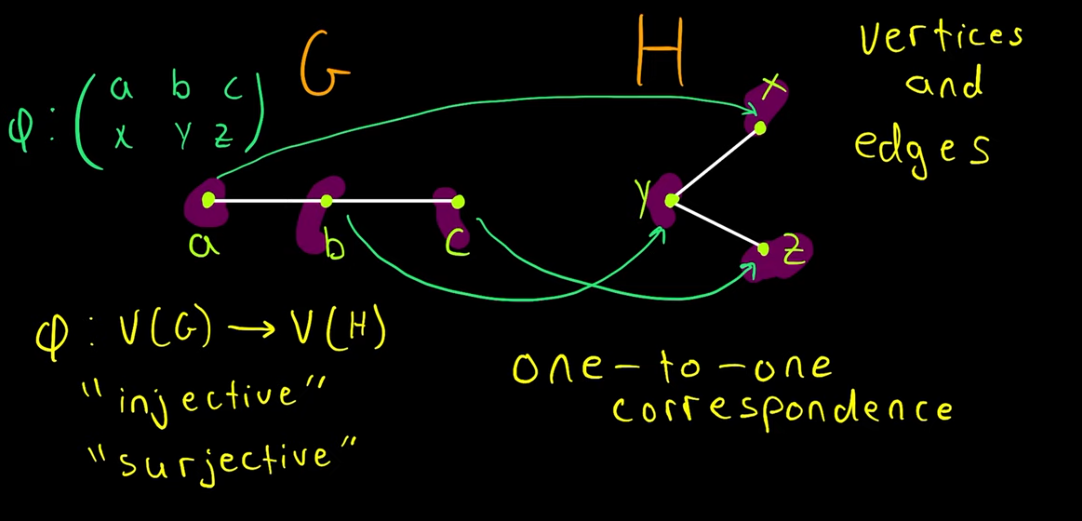 G
H
φ: ( a b c
x y z )
a
b
c
x
y
z
vertices
and
edges
φ: V(G) → V(H)
"injective"
"surjective"
one-to-one
correspondence